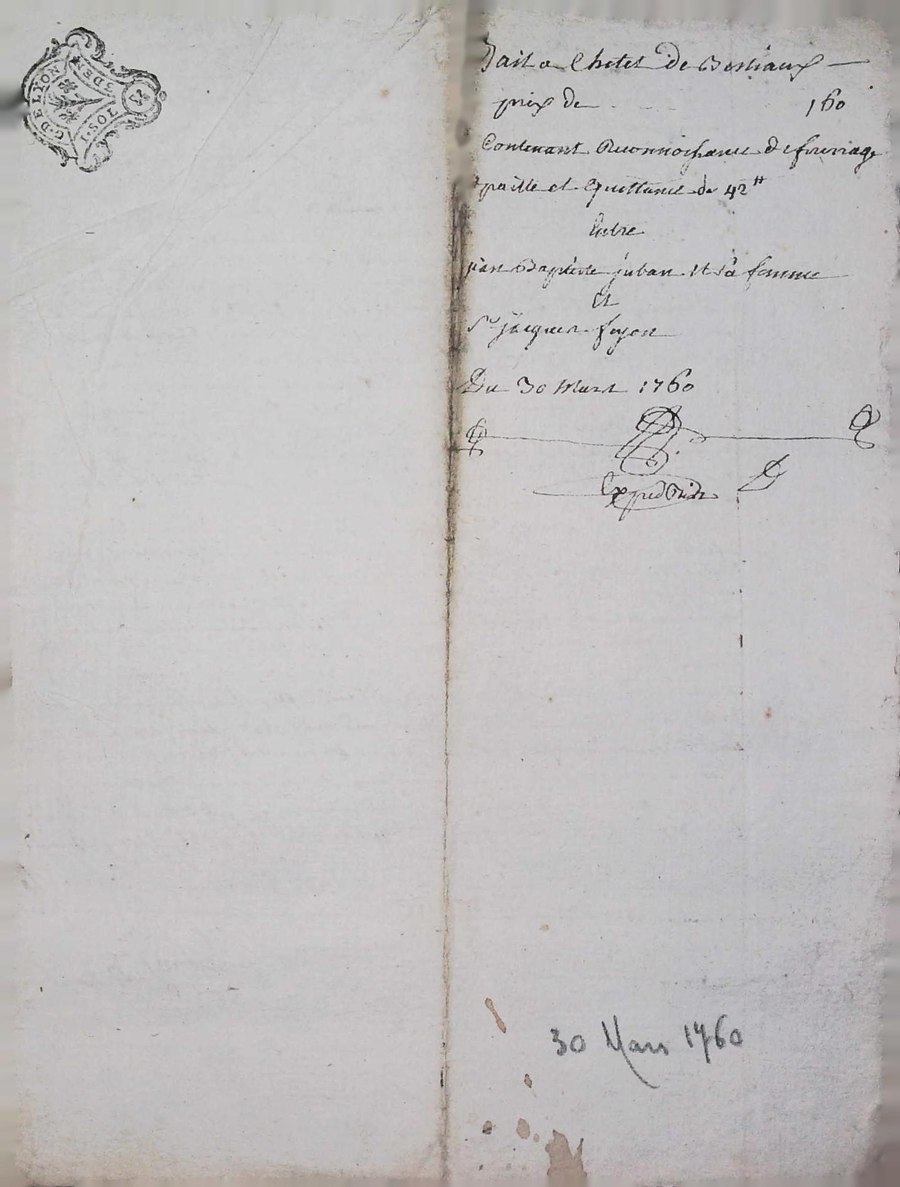 G. DE LYON
1. SOL 3 DE
Bail a Chetel de Bestiaux
prix de 160
Contenant Reconnoissance de fourrage
paille et Quittance de 42#
Entre
jean Baptiste juban et sa femme
Et
Sr jacques foyon
Du 30 Mars 1760
Expedition
30 Mars 1760